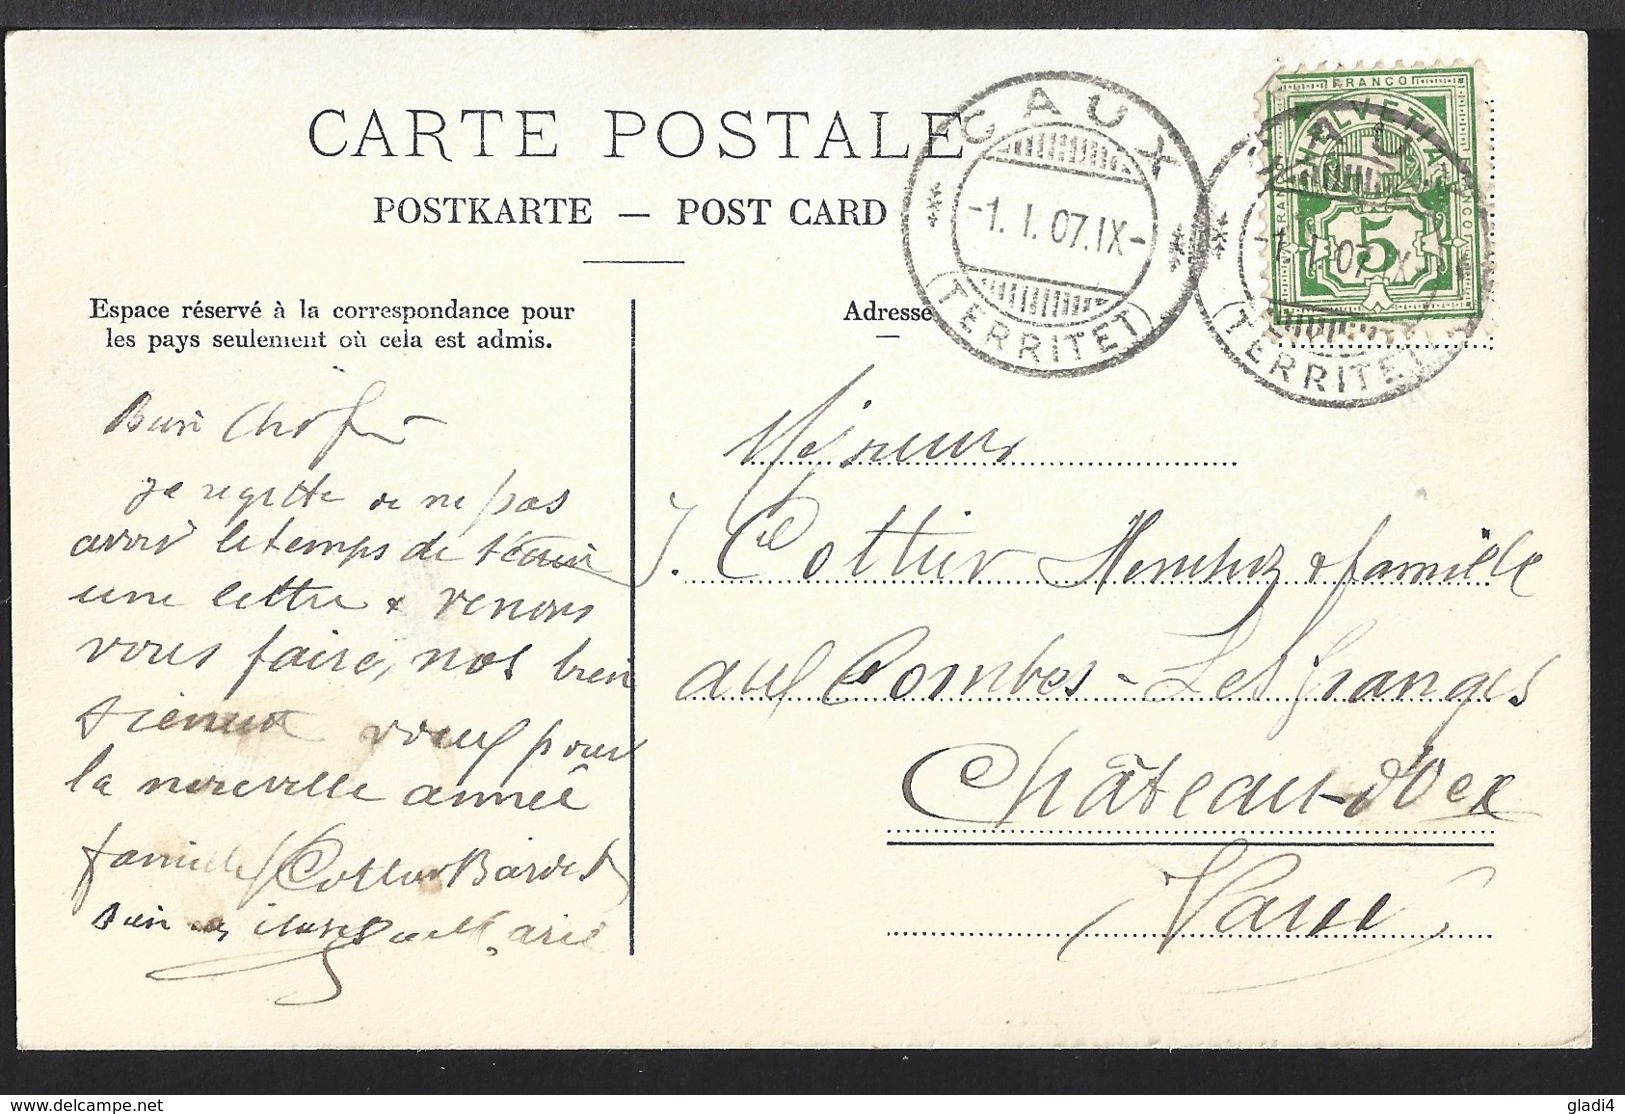 CARTE POSTALE
POSTKARTE — POST CARD
Espace réservé à la correspondance pour
les pays seulement où cela est admis.
Adresse
CAUX
-1. I. 07. IX-
(TERRITET)
FRANCO
HELVETIA
FRANCO
FRANCO
5
-1. I. 07. IX-
(TERRITET)
Bien
je regrette de ne pas
avoir le temps de
une lettre & venons
vous faire, nos bien
voeux pour
la nouvelle année
famille Cottier Bardet
Bien Marie
Messieurs
J. Cottier Henchoz & famille
aux Combes - Les Granges
Château-d'Oex
Vaud
delcampe.net
gladi4